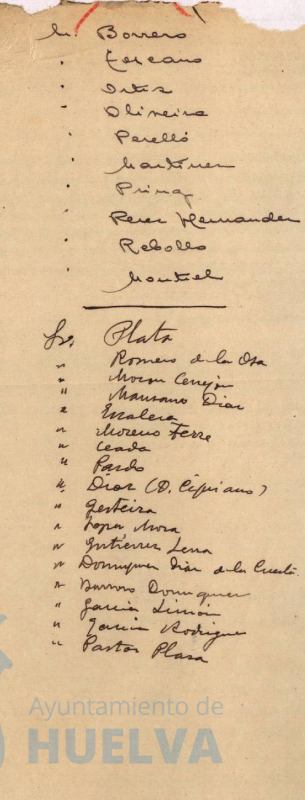 Sr. Borrero
" Toscano
" Ortiz
" Oliveira
" Perelló
" Martinez
"
" Perez Hernandez
" Rebollo
" Montiel
Sr. Plata
" Romero de la Osa
" Moron Cerrejon
" Manzano Diaz
" Escalera
" Moreno Ferre
"
" Pardo
" Diaz (D. Cipriano)
" Gesteira
" Lopez Mora
" Gutierrez Lena
" Dominguez Diaz de la Cuesta
" Barroso Dominguez
" Garcia Limón
" Garcia Rodriguez
" Pastor Plaza
Ayuntamiento de
HUELVA